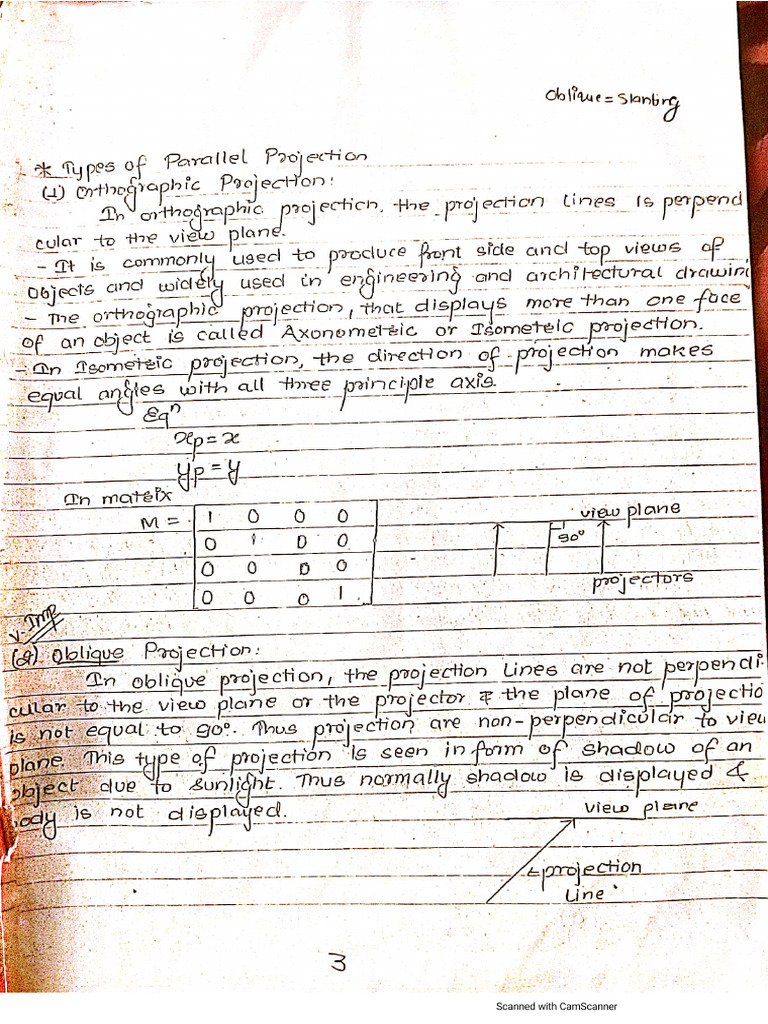 Oblique = Slanting
* Types of Parallel Projection
(1) Orthographic Projection:
In orthographic projection, the projection lines is perpend
cular to the view plane.
- It is commonly used to produce front side and top views of
objects and widely used in engineering and architectural drawin
- The orthographic projection, that displays more than one face
of an object is called Axonometric or Isometric projection.
- In Isometric projection, the direction of projection makes
equal angles with all three principle axis.
Eqⁿ
xp = x
yp = y
In matrix
M = 1 0 0 0
0 1 0 0
0 0 0 0
0 0 0 1
view plane
90°
projectors
V. IMP
(2) Oblique Projection:
In oblique projection, the projection lines are not perpendi-
cular to the view plane or the projector & the plane of projectio
is not equal to 90°. Thus projection are non-perpendicular to view
plane. This type of projection is seen in form of shadow of an
object due to sunlight. Thus normally shadow is displayed &
body is not displayed.
view plane
projection
line
3
Scanned with CamScanner